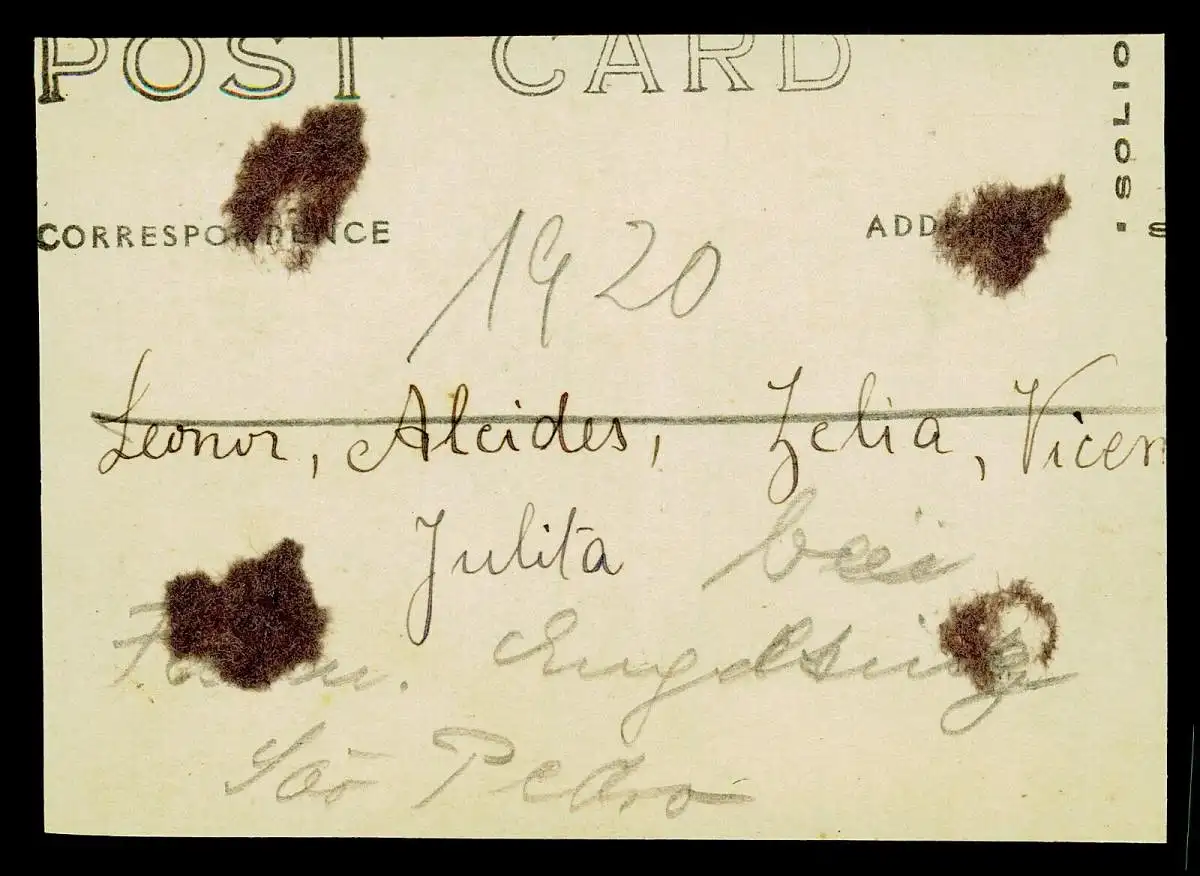 POST CARD
CORRESPONDENCE
ADD
"SOLIO
1920
Leonor, Alcides, Zelia, Vicen
Julita bei
Fam.
São Pedro